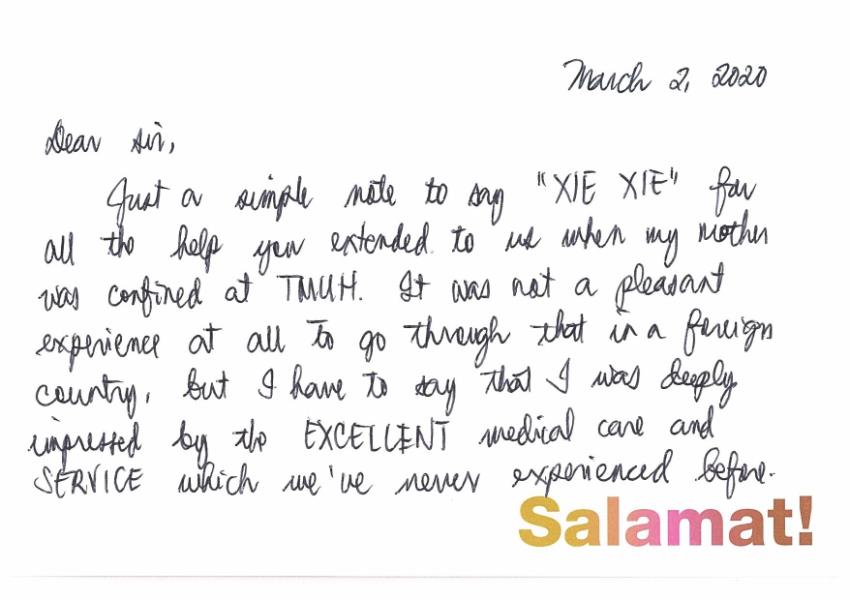 March 2, 2020
Dear Sir,
Just a simple note to say "XIE XIE" for
all the help you extended to us when my mother
was confined at TMUH. It was not a pleasant
experience at all to go through that in a foreign
country, but I have to say that I was deeply
impressed by the EXCELLENT medical care and
SERVICE which we've never experienced before.
Salamat!